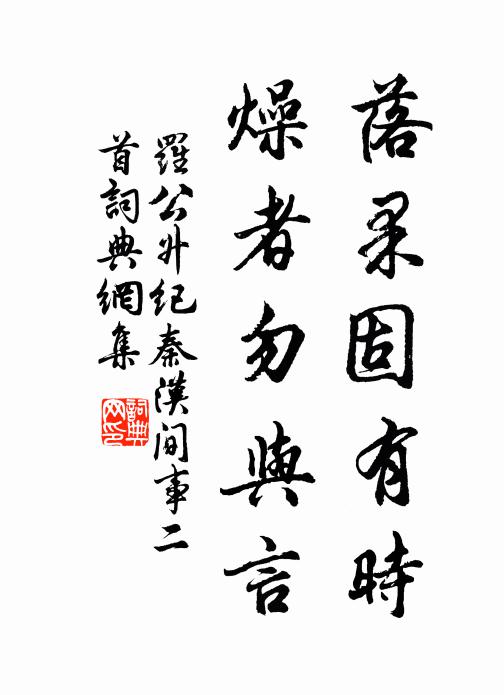 落果固有時
燥者勿與言
羅公升紀秦漢間事二
首詞典網集
詞典网印